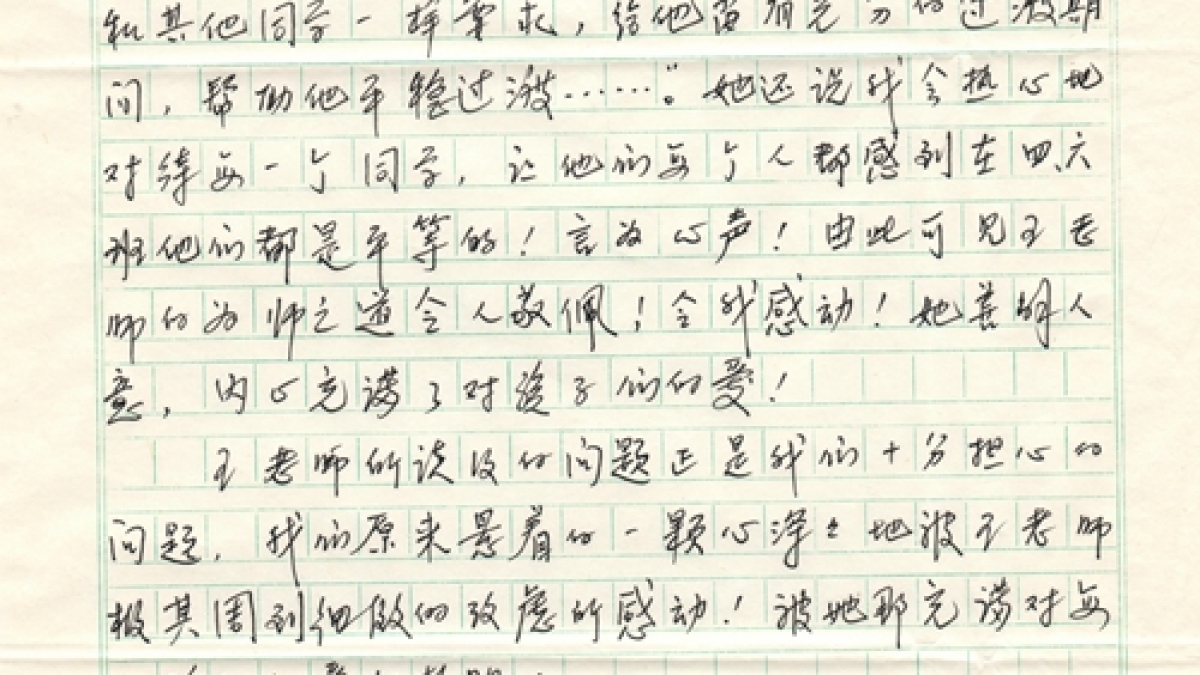 和其他同学一样要求，给他留有充分的过渡期
间，帮助他平稳过渡……”。她还说我会热心地
对待每一个同学，让他们每个人都感到在四六
班他们都是平等的！言为心声！由此可见王老
师的为师之道令人敬佩！令我感动！她善解人
意，内心充满了对孩子们的爱！
王老师所谈及的问题正是我们十分担心的
问题，我们原来悬着的一颗心深々地被王老师
极其周到细微的考虑所感动！被她那充满对每